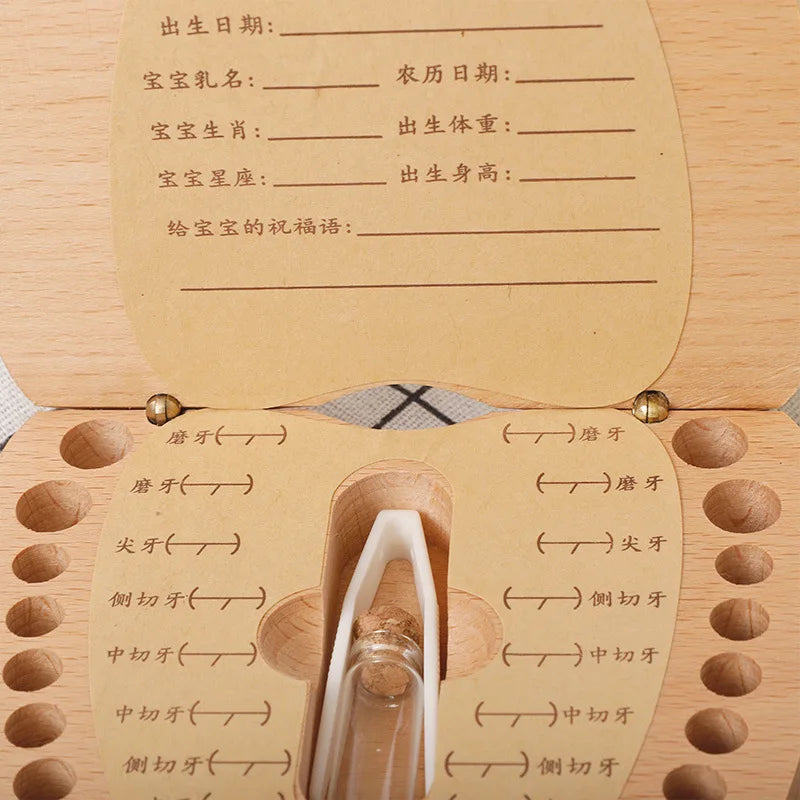 出生日期:
宝宝乳名: 农历日期:
宝宝生肖: 出生体重:
宝宝星座: 出生身高:
给宝宝的祝福语:
磨牙(-/-) (-/-)磨牙
磨牙(-/-) (-/-)磨牙
尖牙(-/-) (-/-)尖牙
侧切牙(-/-) (-/-)侧切牙
中切牙(-/-) (-/-)中切牙
中切牙(-/-) (-/-)中切牙
侧切牙(-/-) (-/-)侧切牙